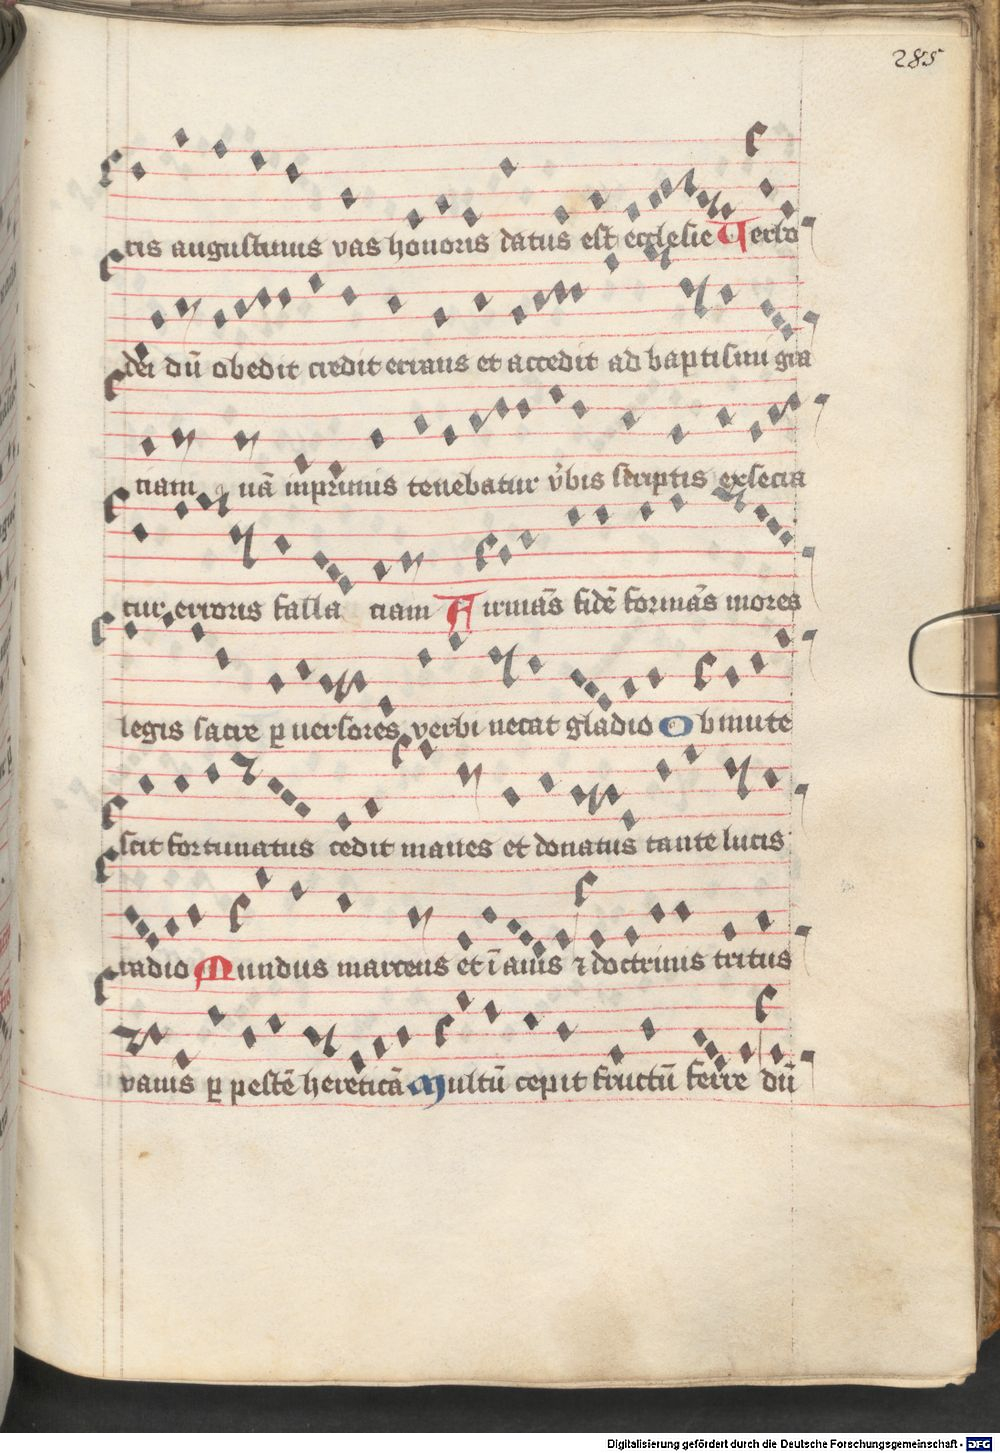 285
cis augustinus vas honoris datus est ecclesie Verbo
dei dū obedit credit errans et accedit ad baptismi gra
ciam quā inprimis tenebatur v̓bis scriptis exsecra
tur erroris falla ciam Firmās fidē formās mores
legis sacre p uersores verbi necat gladio Obmute
scit fortunatus cedit manes et donatus tante lucis
radio Mundus marcens et ī anis ⁊ doctrinis tritus
vanis p pestē hereticā Multū cepit fructū ferre dū
Digitalisierung gefördert durch die Deutsche Forschungsgemeinschaft - DFG